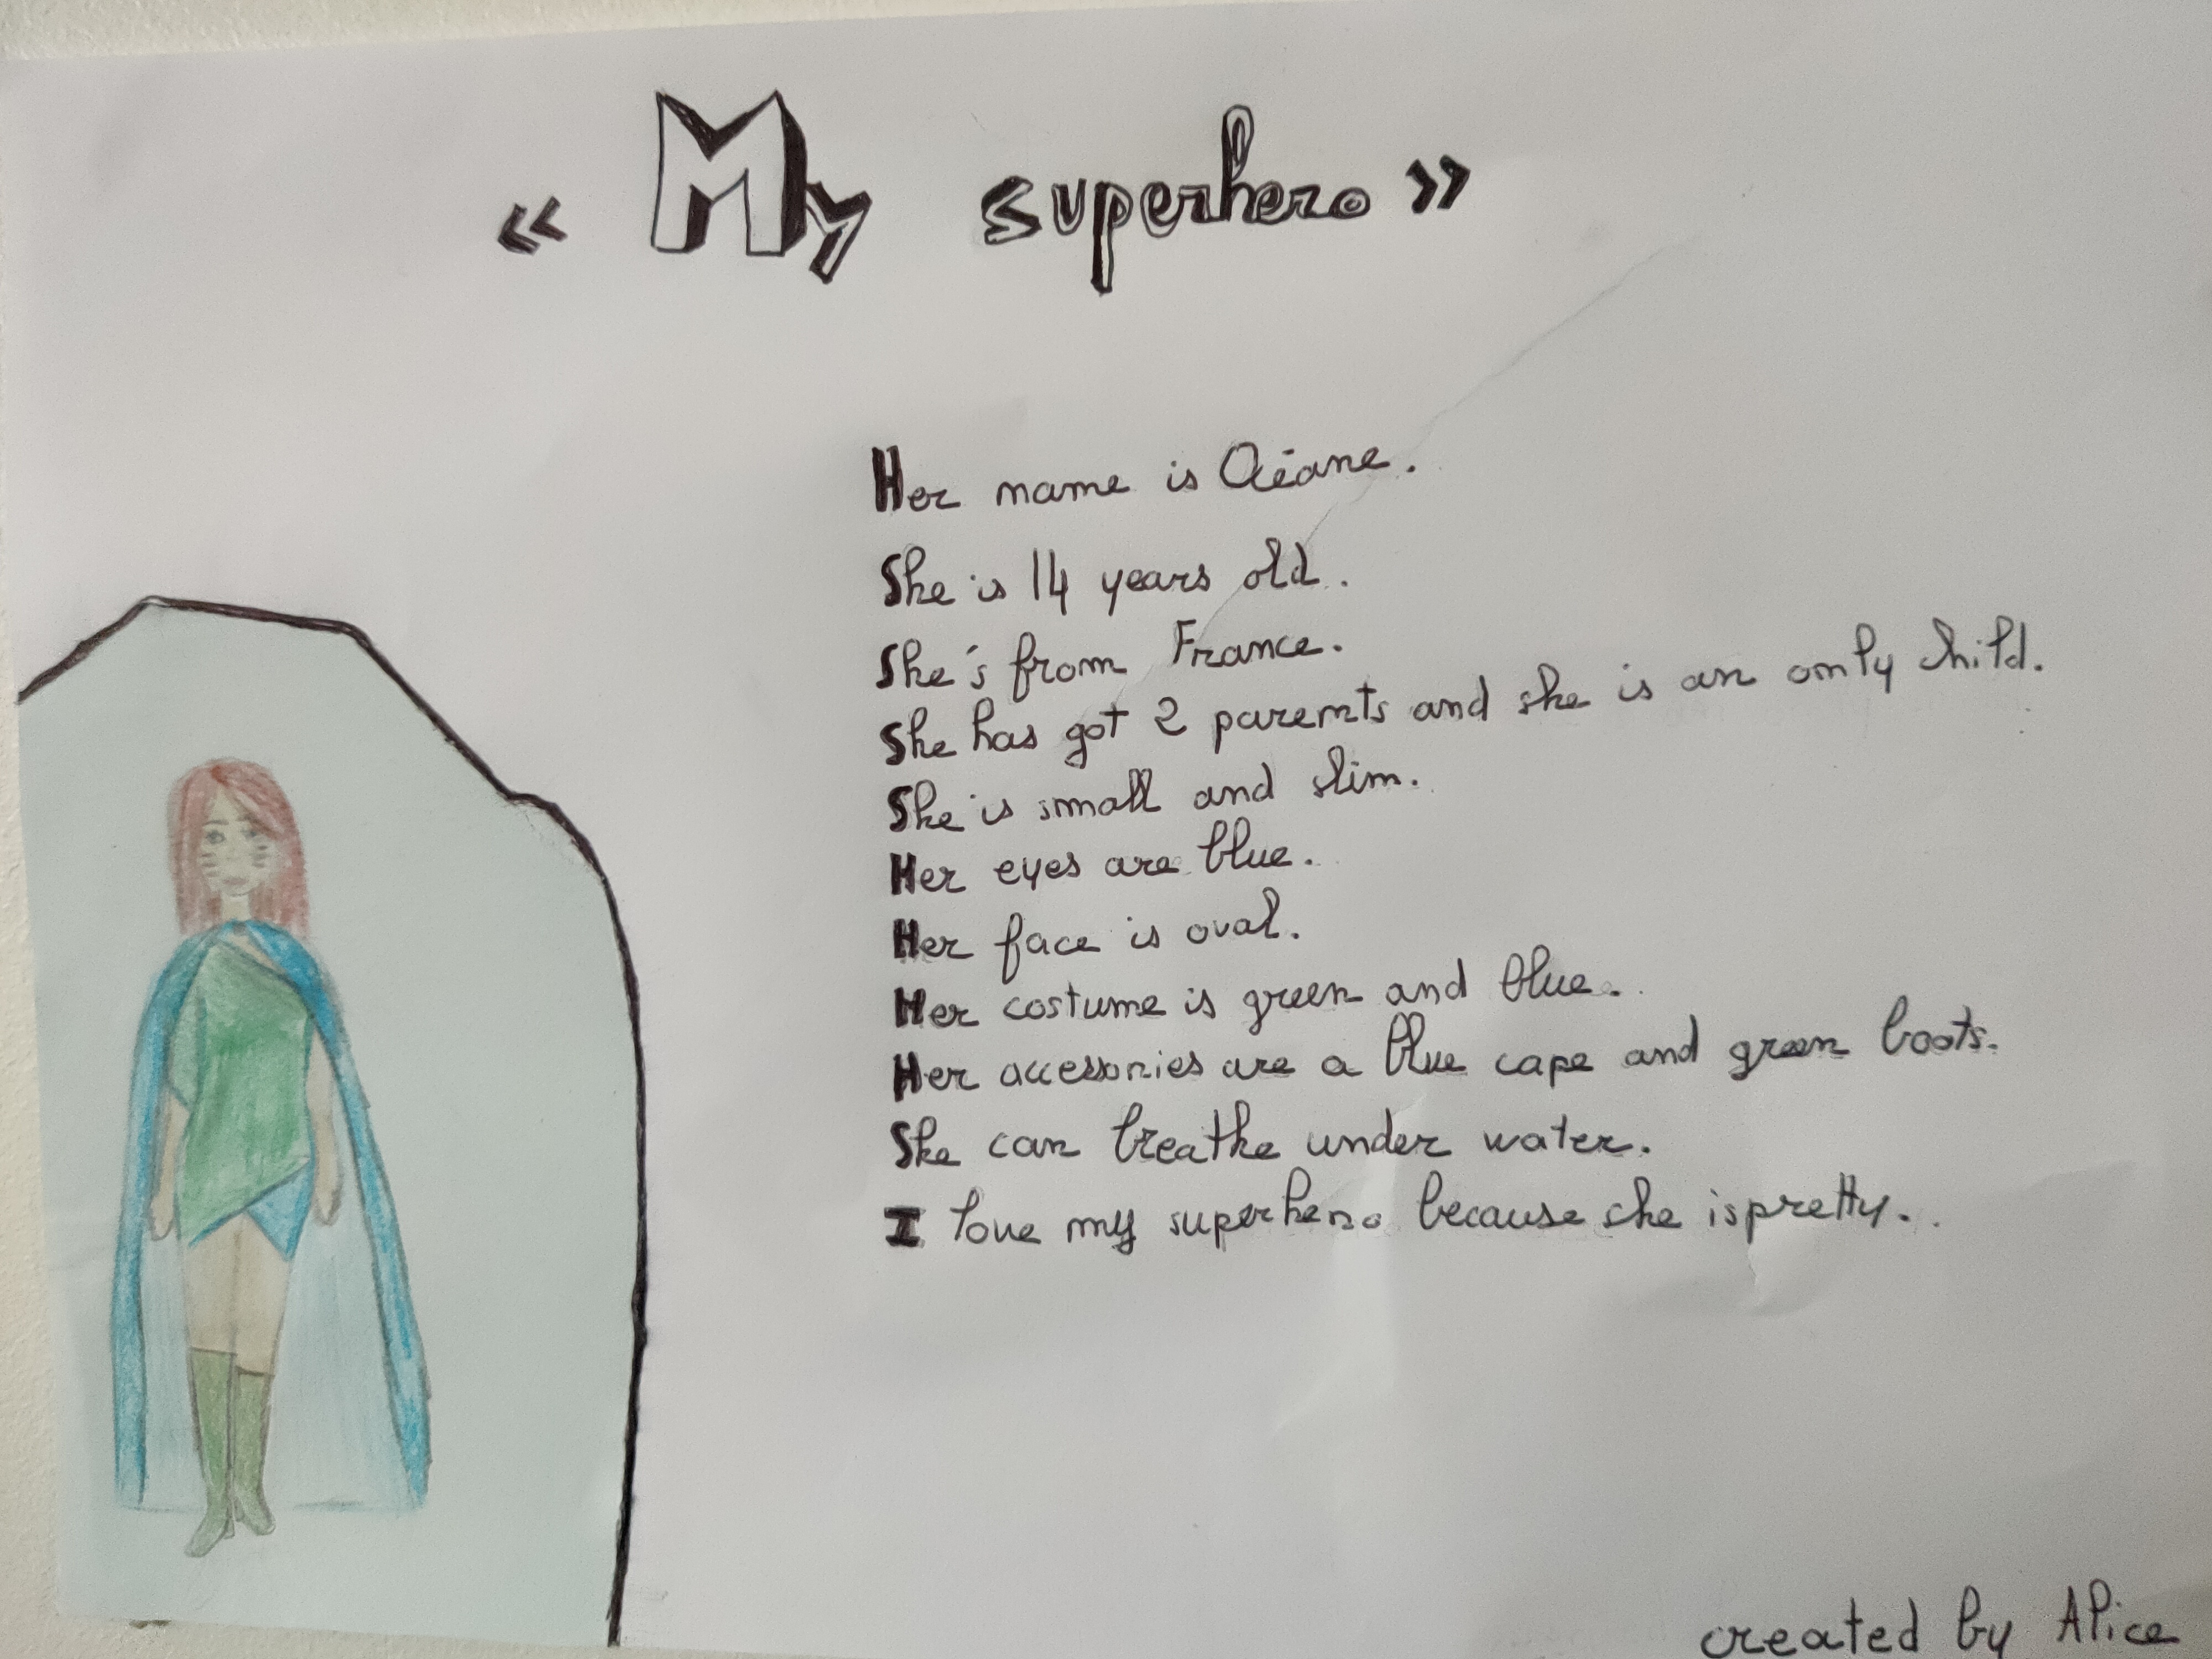 « My superhero »
Her name is Océane.
She is 14 years old.
She's from France.
She has got 2 parents and she is an only child.
She is small and slim.
Her eyes are blue.
Her face is oval.
Her costume is green and blue.
Her accessories are a blue cape and green boots.
She can breathe under water.
I love my superhero because she is pretty.
created by Alice